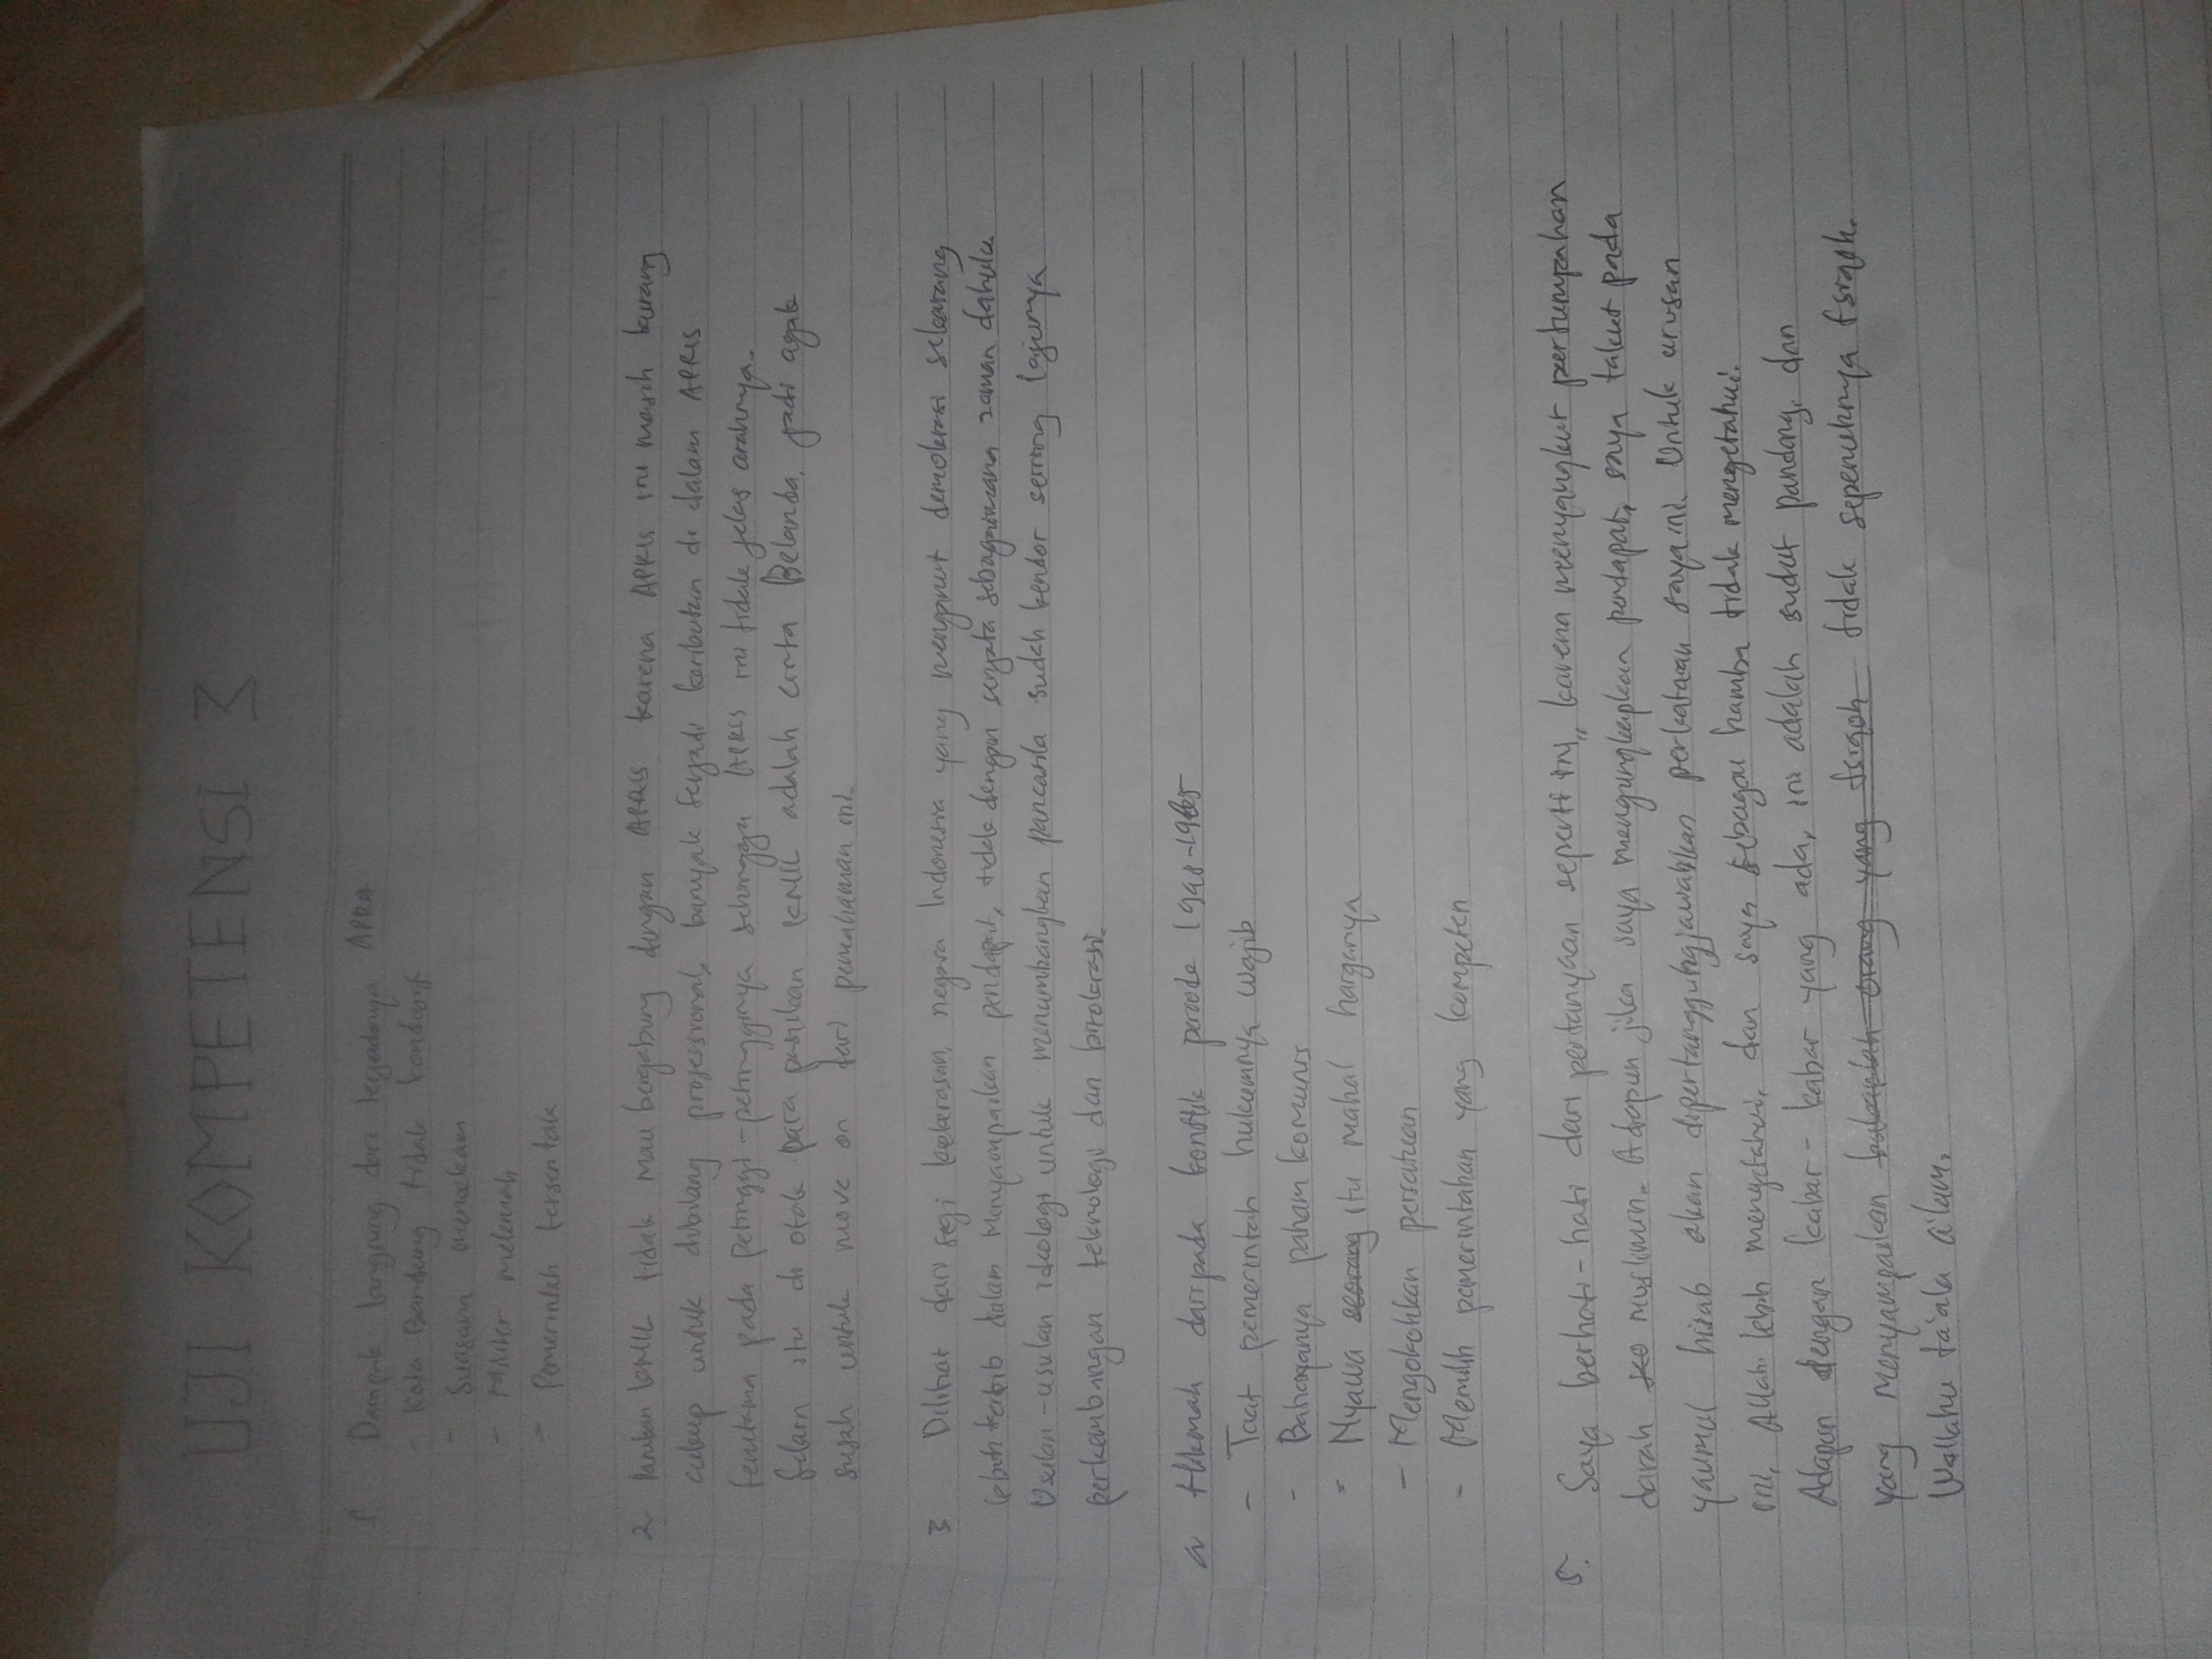 UJI KOMPETENSI 3
1. Dampak langsung dari terjadinya APRA
- Kota Bandung tidak kondusif
- Suasana mencekam
- Militer melemah
- Pemerintah tersentak
2. Pasukan KNIL tidak mau bergabung dengan APRIS karena APRIS ini masih kurang
cukup untuk dibilang professional, banyak terjadi keributan di dalam APRIS
terutama pada petinggi-petingginya sehingga APRIS ini tidak jelas arahnya.
Selain itu di otak para pasukan KNIL adalah cinta Belanda, jadi agak
susah untuk move on dari pemahaman ini.
3 Dilihat dari segi kekerasan, negara Indonesia yang menganut demokrasi sekarang
lebih tertib dalam menyampaikan pendapat, tidak dengan senjata sebagaimana zaman dahulu
Usulan-usulan ideologi untuk menumbangkan pancasila sudah kendor seiring lajunya
perkembangan teknologi dan birokrasi.
4 Hikmah daripada konflik periode 1948-1965
- Taat pemerintah hukumnya wajib
- Bahayanya paham komunis
- Nyawa seorang itu mahal harganya
- Mengokohkan persatuan
- Memilih pemerintahan yang kompeten
5. Saya berhati-hati dari pertanyaan seperti ini, karena menyangkut pertumpahan
darah muslimin. Adapun jika saya mengungkapkan pendapat, saya takut pada
yaumul hisab akan dipertanggungjawabkan perkataan saya ini. Untuk urusan
ini, Allah lebih mengetahui, dan saya sebagai hamba tidak mengetahui.
Adapun dengan kabar-kabar yang ada, ini adalah sudut pandang, dan
yang menyampaikan bukanlah orang yang tsiqoh tidak sepenuhnya tsiqoh.
Wallahu ta'ala a'lam.